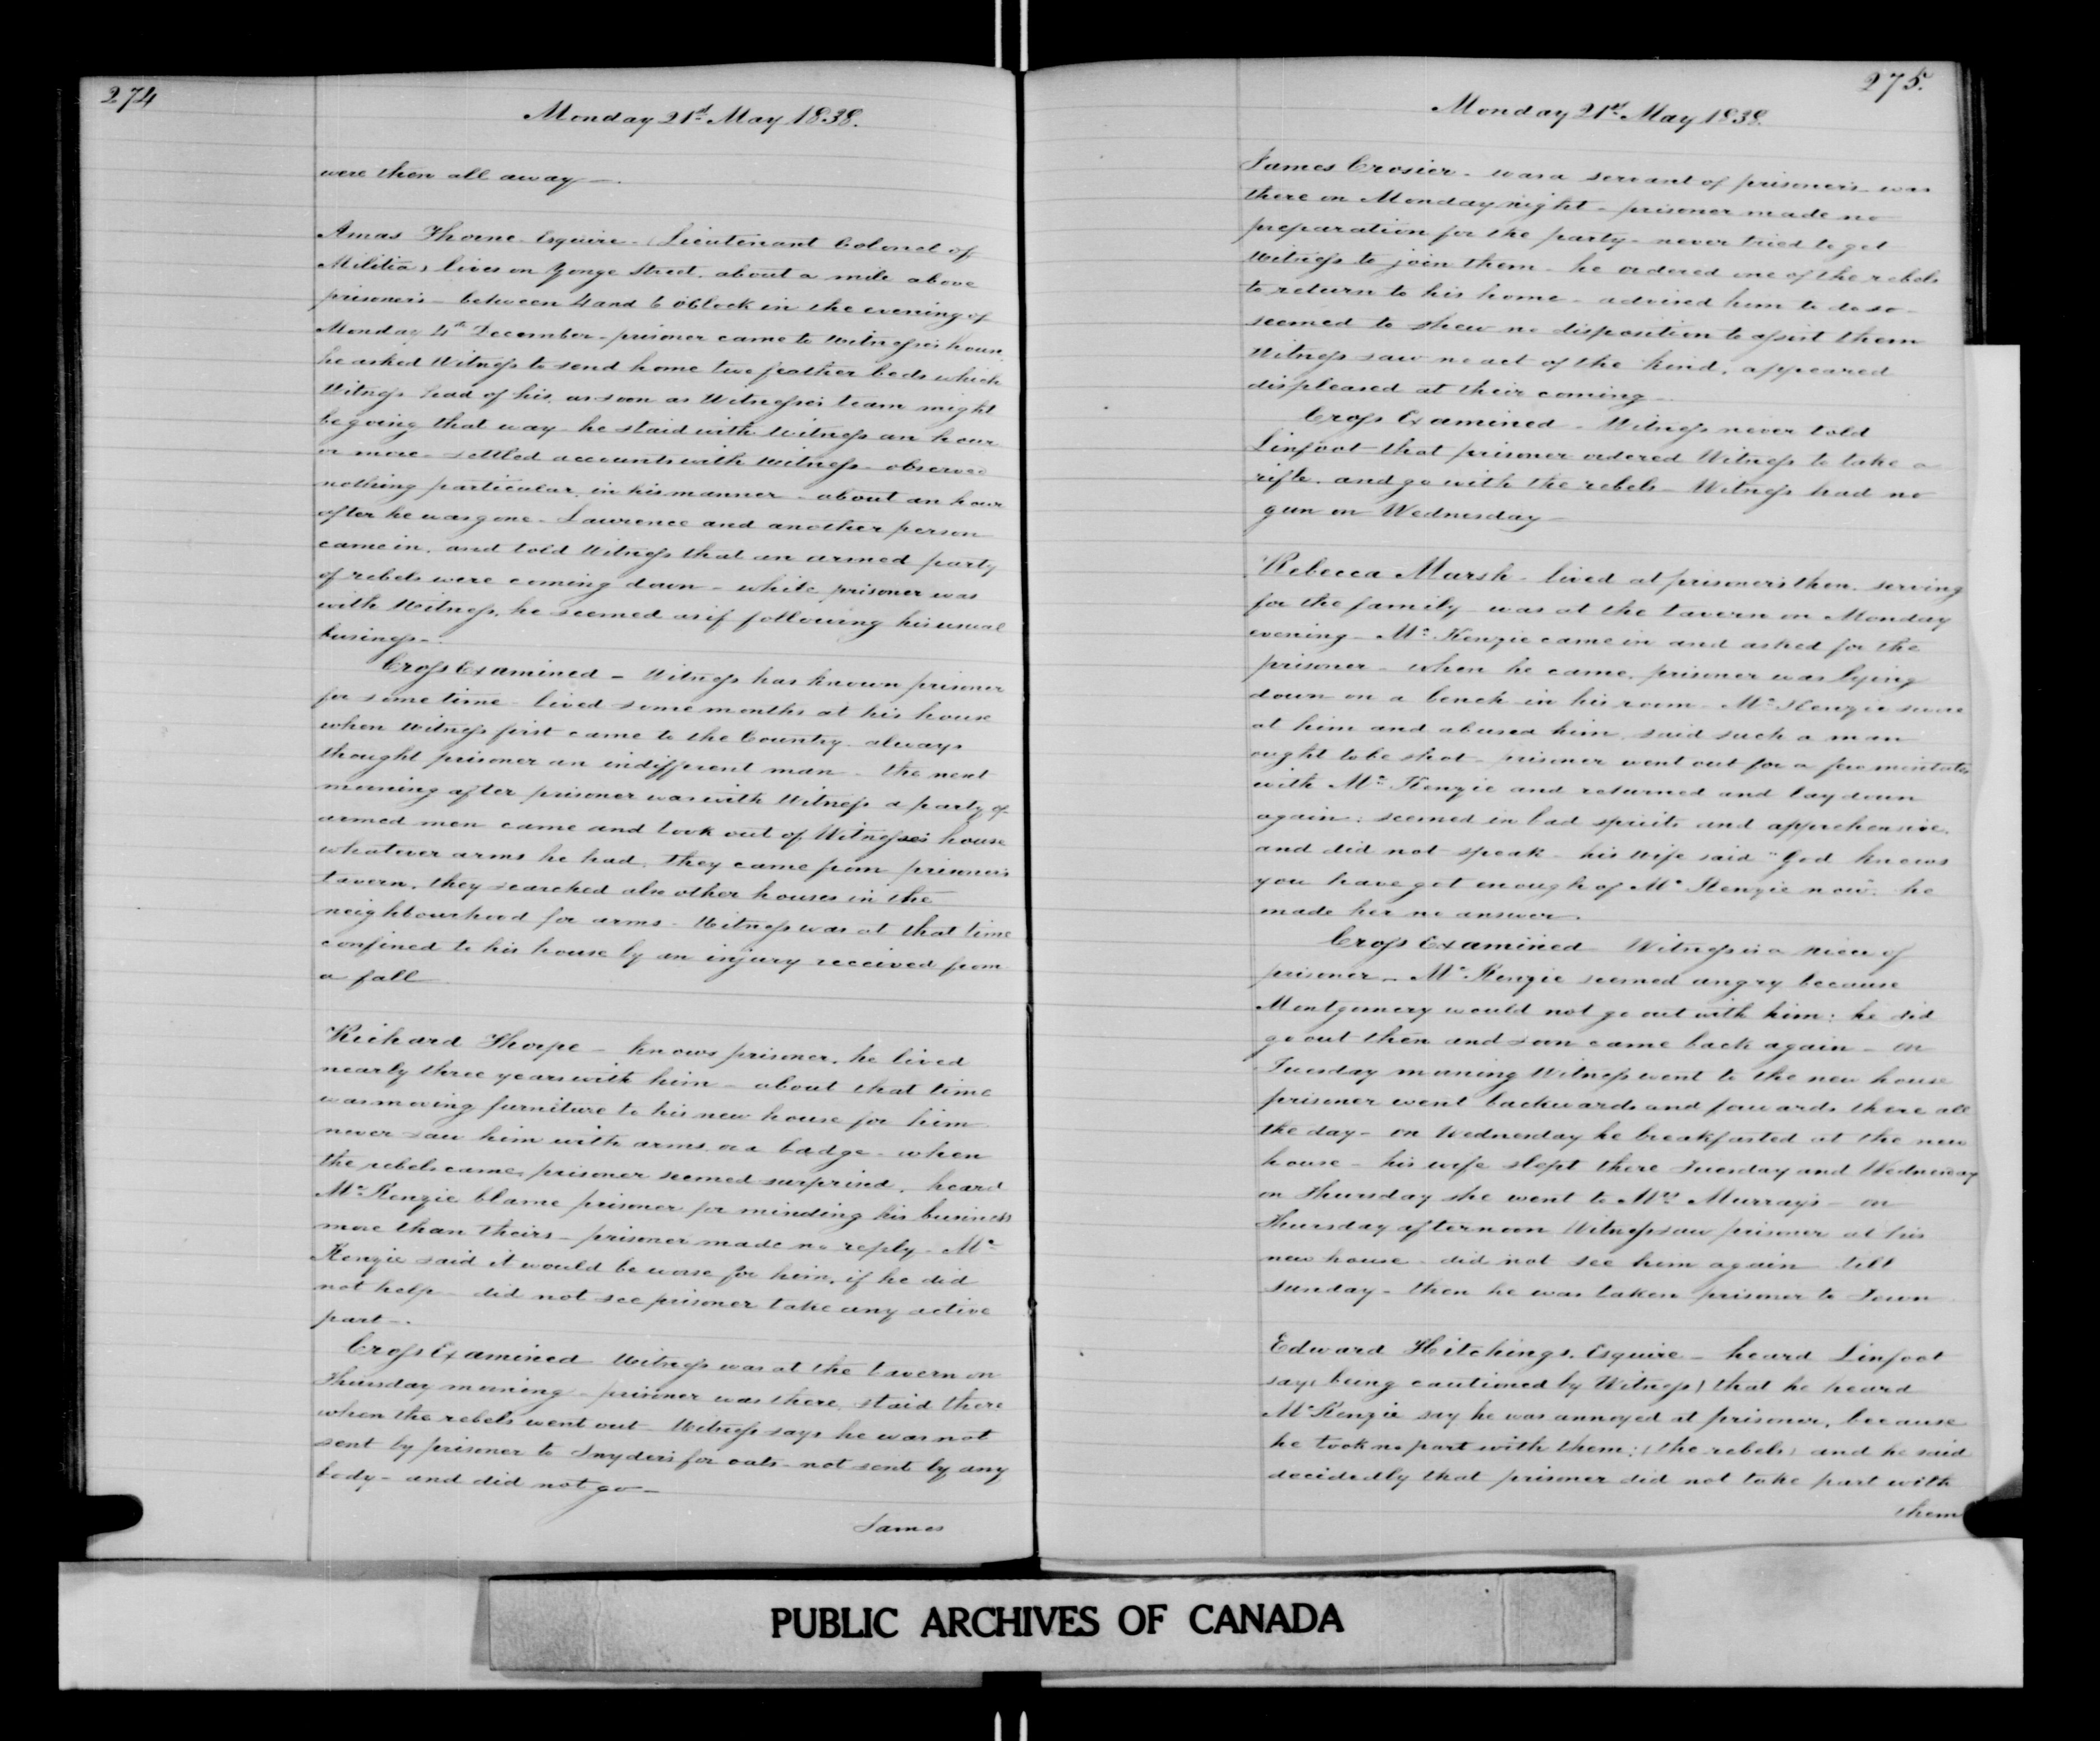 274
Monday 21st May 1838.
were then all away —.
Amas Thorne Esquire - (Lieutenant Colonel of
Militia) lives on Yonge Street. about a mile above
prisoner's - between 4 and 6 oClock in the evening of
Monday 4th December - prisoner came to Witness's house
he asked Witness to send home two feather beds which
Witness had of his, as soon as Witness's team might
be going that way - he staid with Witness an hour
or more - settled accounts with Witness - observed
nothing particular in his manner - about an hour
after he was gone - Lawrence and another person
came in, and told Witness that an armed party
of rebels were coming down - while prisoner was
with Witness, he seemed as if following his usual
business -.
Cross Examined - Witness has known prisoner
for some time - lived some months at his house
when Witness first came to the Country - always
thought prisoner an indifferent man - the next
morning after prisoner was with Witness a party of
armed men came and took out of Witness's house
whatever arms he had, they came from prisoner's
tavern, they searched also other houses in the
neighbourhood for arms - Witness was at that time
confined to his house by an injury received from
a fall
Richard Thorpe - knows prisoner, he lived
nearly three years with him - about that time
was moving furniture to his new house for him
never saw him with arms or a badge - when
the rebels came, prisoner seemed surprised, heard
McKenzie blame prisoner for minding his business
more than theirs - prisoner made no reply - Mc
Kenzie said it would be worse for him, if he did
not help - did not see prisoner take any active
part -.
Cross Examined Witness was at the tavern on
Thursday morning - prisoner was there, staid there
when the rebels went out - Witness says he was not
sent by prisoner to Snyder's for oats - not sent by any
body - and did not go —
James
275.
Monday 21st May 1838.
James Crosier - was a servant of prisoner's - was
there on Monday night - prisoner made no
preparation for the party - never tried to get
Witness to join them - he ordered one of the rebels
to return to his home - advised him to do so -
seemed to shew no disposition to assist them
Witness saw no act of the kind, appeared
displeased at their coming —
Cross Examined - Witness never told
Linfoot that prisoner ordered Witness to take a
rifle, and go with the rebels - Witness had no
gun on Wednesday —
Rebecca Marsh - lived at prisoner's then, serving
for the family - was at the tavern on Monday
evening - McKenzie came in and asked for the
prisoner - when he came, prisoner was lying
down on a bench in his room - McKenzie swore
at him and abused him, said such a man
ought to be shot - prisoner went out for a few minutes
with McKenzie and returned and lay down
again; seemed in bad spirits and apprehensive,
and did not speak - his wife said "God knows
you have got enough of McKenzie now", he
made her no answer.
Cross Examined - Witness is a niece of
prisoner - McKenzie seemed angry because
Montgomery would not go out with him; he did
go out then and soon came back again - on
Tuesday morning Witness went to the new house
prisoner went backwards and forwards there all
the day - on Wednesday he breakfasted at the new
house - his wife slept there Tuesday and Wednesday
on Thursday she went to Mrs Murray's - on
Thursday afternoon Witness saw prisoner at his
new house - did not see him again till
Sunday - then he was taken prisoner to Town
Edward Hitchings, Esquire - heard Linfoot
say (being cautioned by Witness) that he heard
McKenzie say he was annoyed at prisoner, because
he took no part with them; (the rebels) and he said
decidedly that prisoner did not take part with
them
PUBLIC ARCHIVES OF CANADA